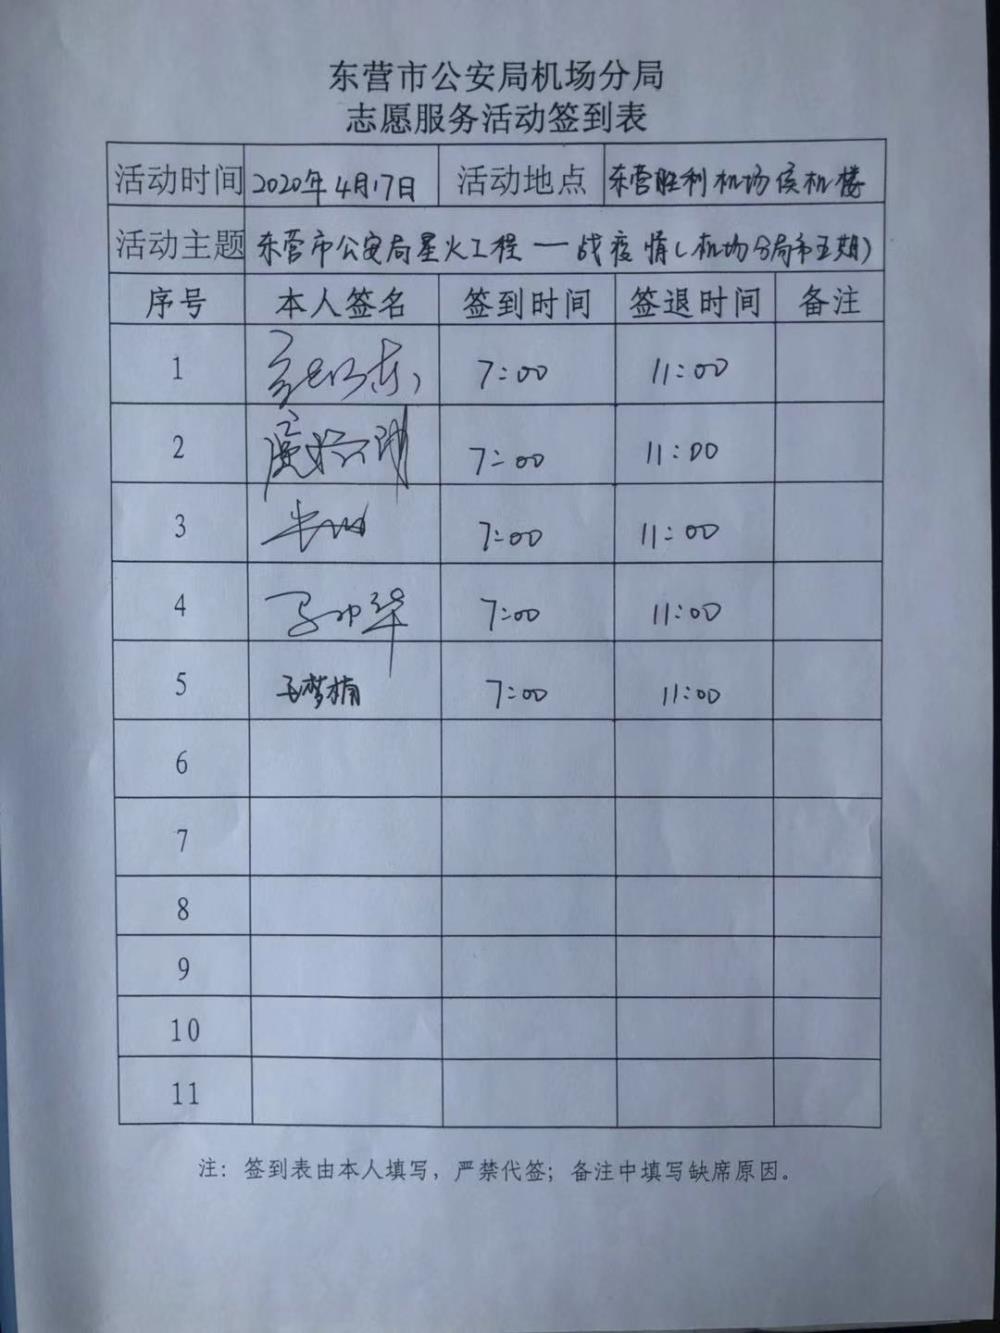 东营市公安局机场分局
志愿服务活动签到表
活动时间 2020年4月17日 活动地点 东营胜利机场侯机楼
活动主题 东营市公安局星火工程 — 战疫情(机场分局第五期)
序号 本人签名 签到时间 签退时间 备注
1 7:00 11:00
2 7:00 11:00
3 7:00 11:00
4 7:00 11:00
5 王梦楠 7:00 11:00
6
7
8
9
10
11
注：签到表由本人填写，严禁代签；备注中填写缺席原因。